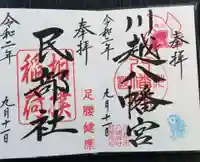 奉拝
川越八幡宮
令和二年
九月十一日
奉拝
民部社
足腰健康
相撲稲荷
令和二年
九月十一日